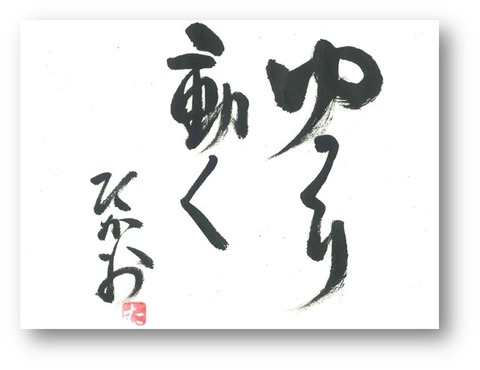 ゆっくり
動く
ひがお
た